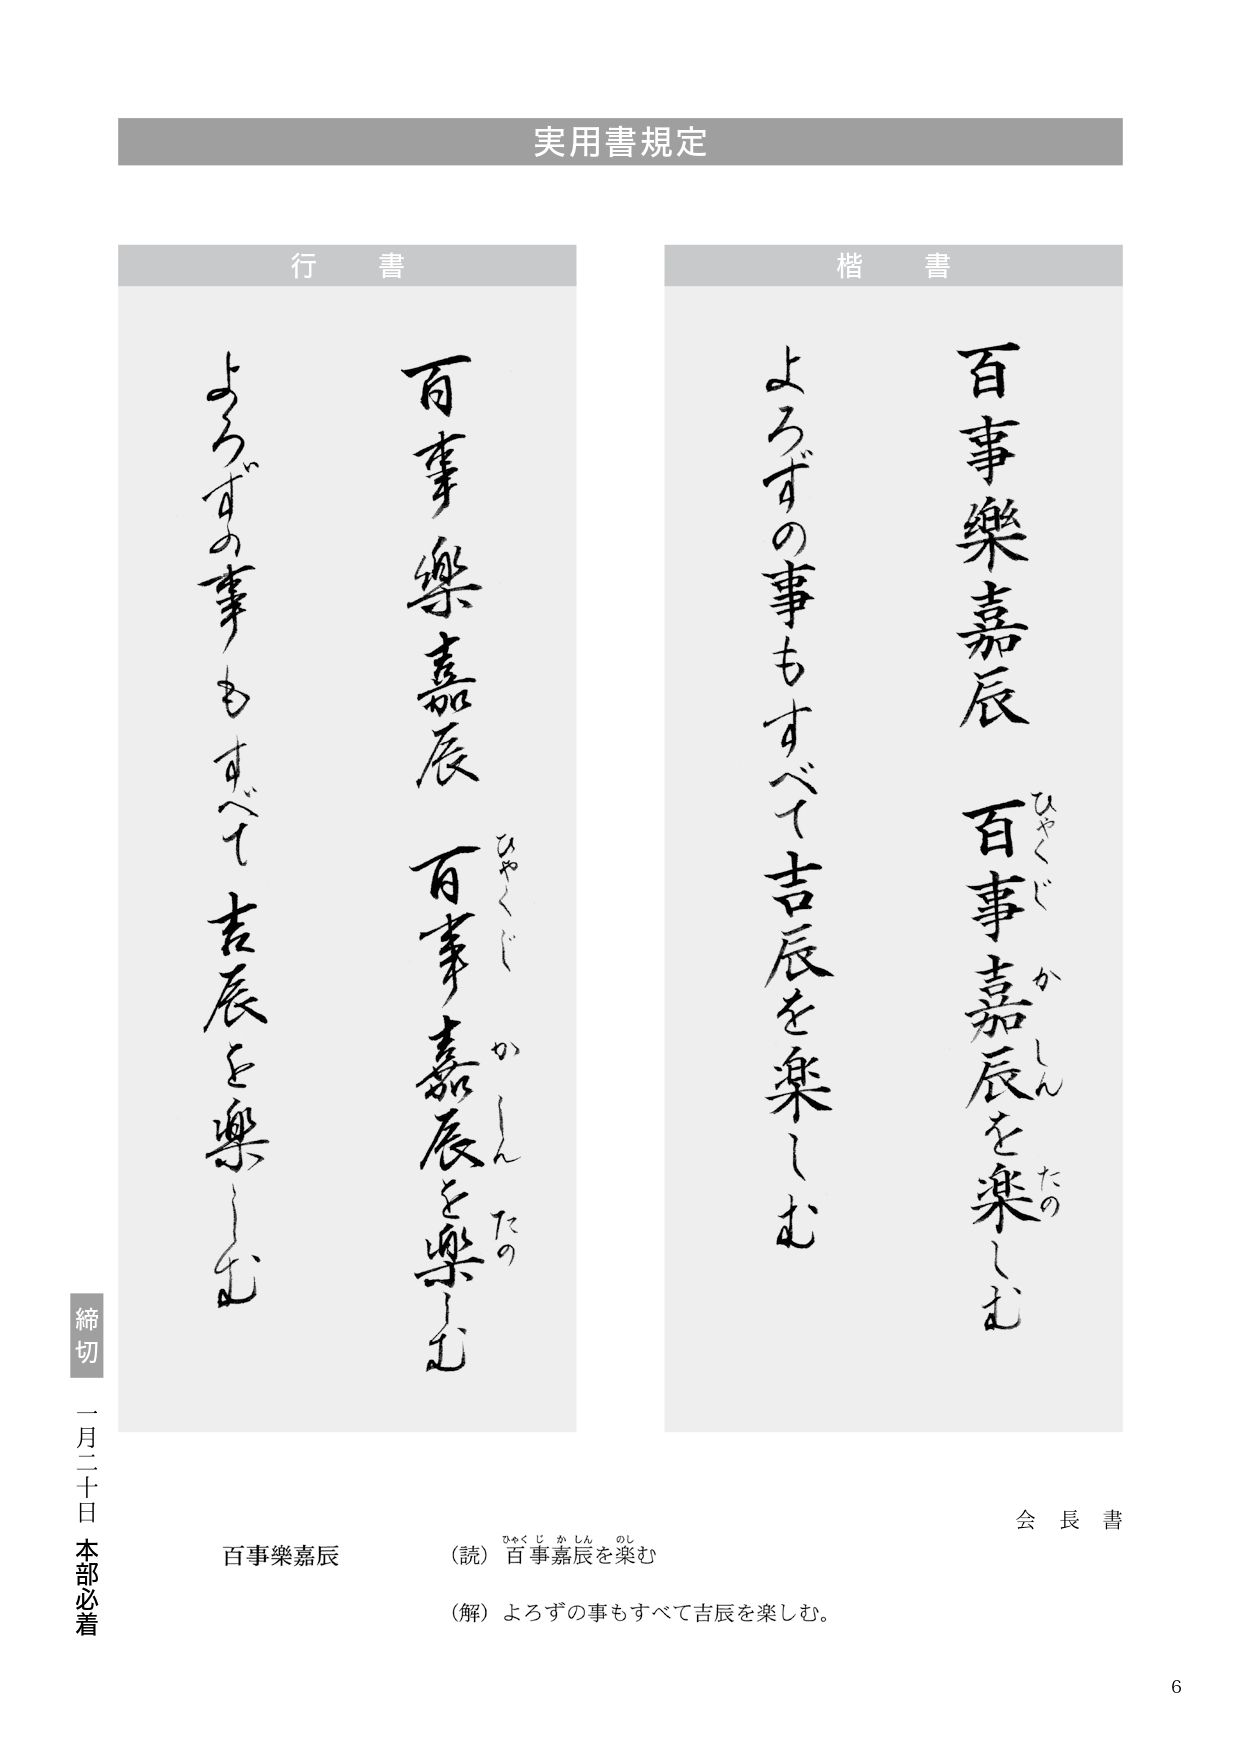 実用書規定
楷書
百事樂嘉辰 百事嘉辰を楽しむ
ひゃくじ かしん たの
よろずの事もすべて吉辰を楽しむ
行書
百事樂嘉辰 百事嘉辰を楽しむ
ひゃくじ かしん たの
よろずの事もすべて吉辰を楽しむ
締切
一月二十日 本部必着
会長書
百事樂嘉辰
ひゃくじかしん のし
（読）百事嘉辰を楽む
（解）よろずの事もすべて吉辰を楽しむ。
6